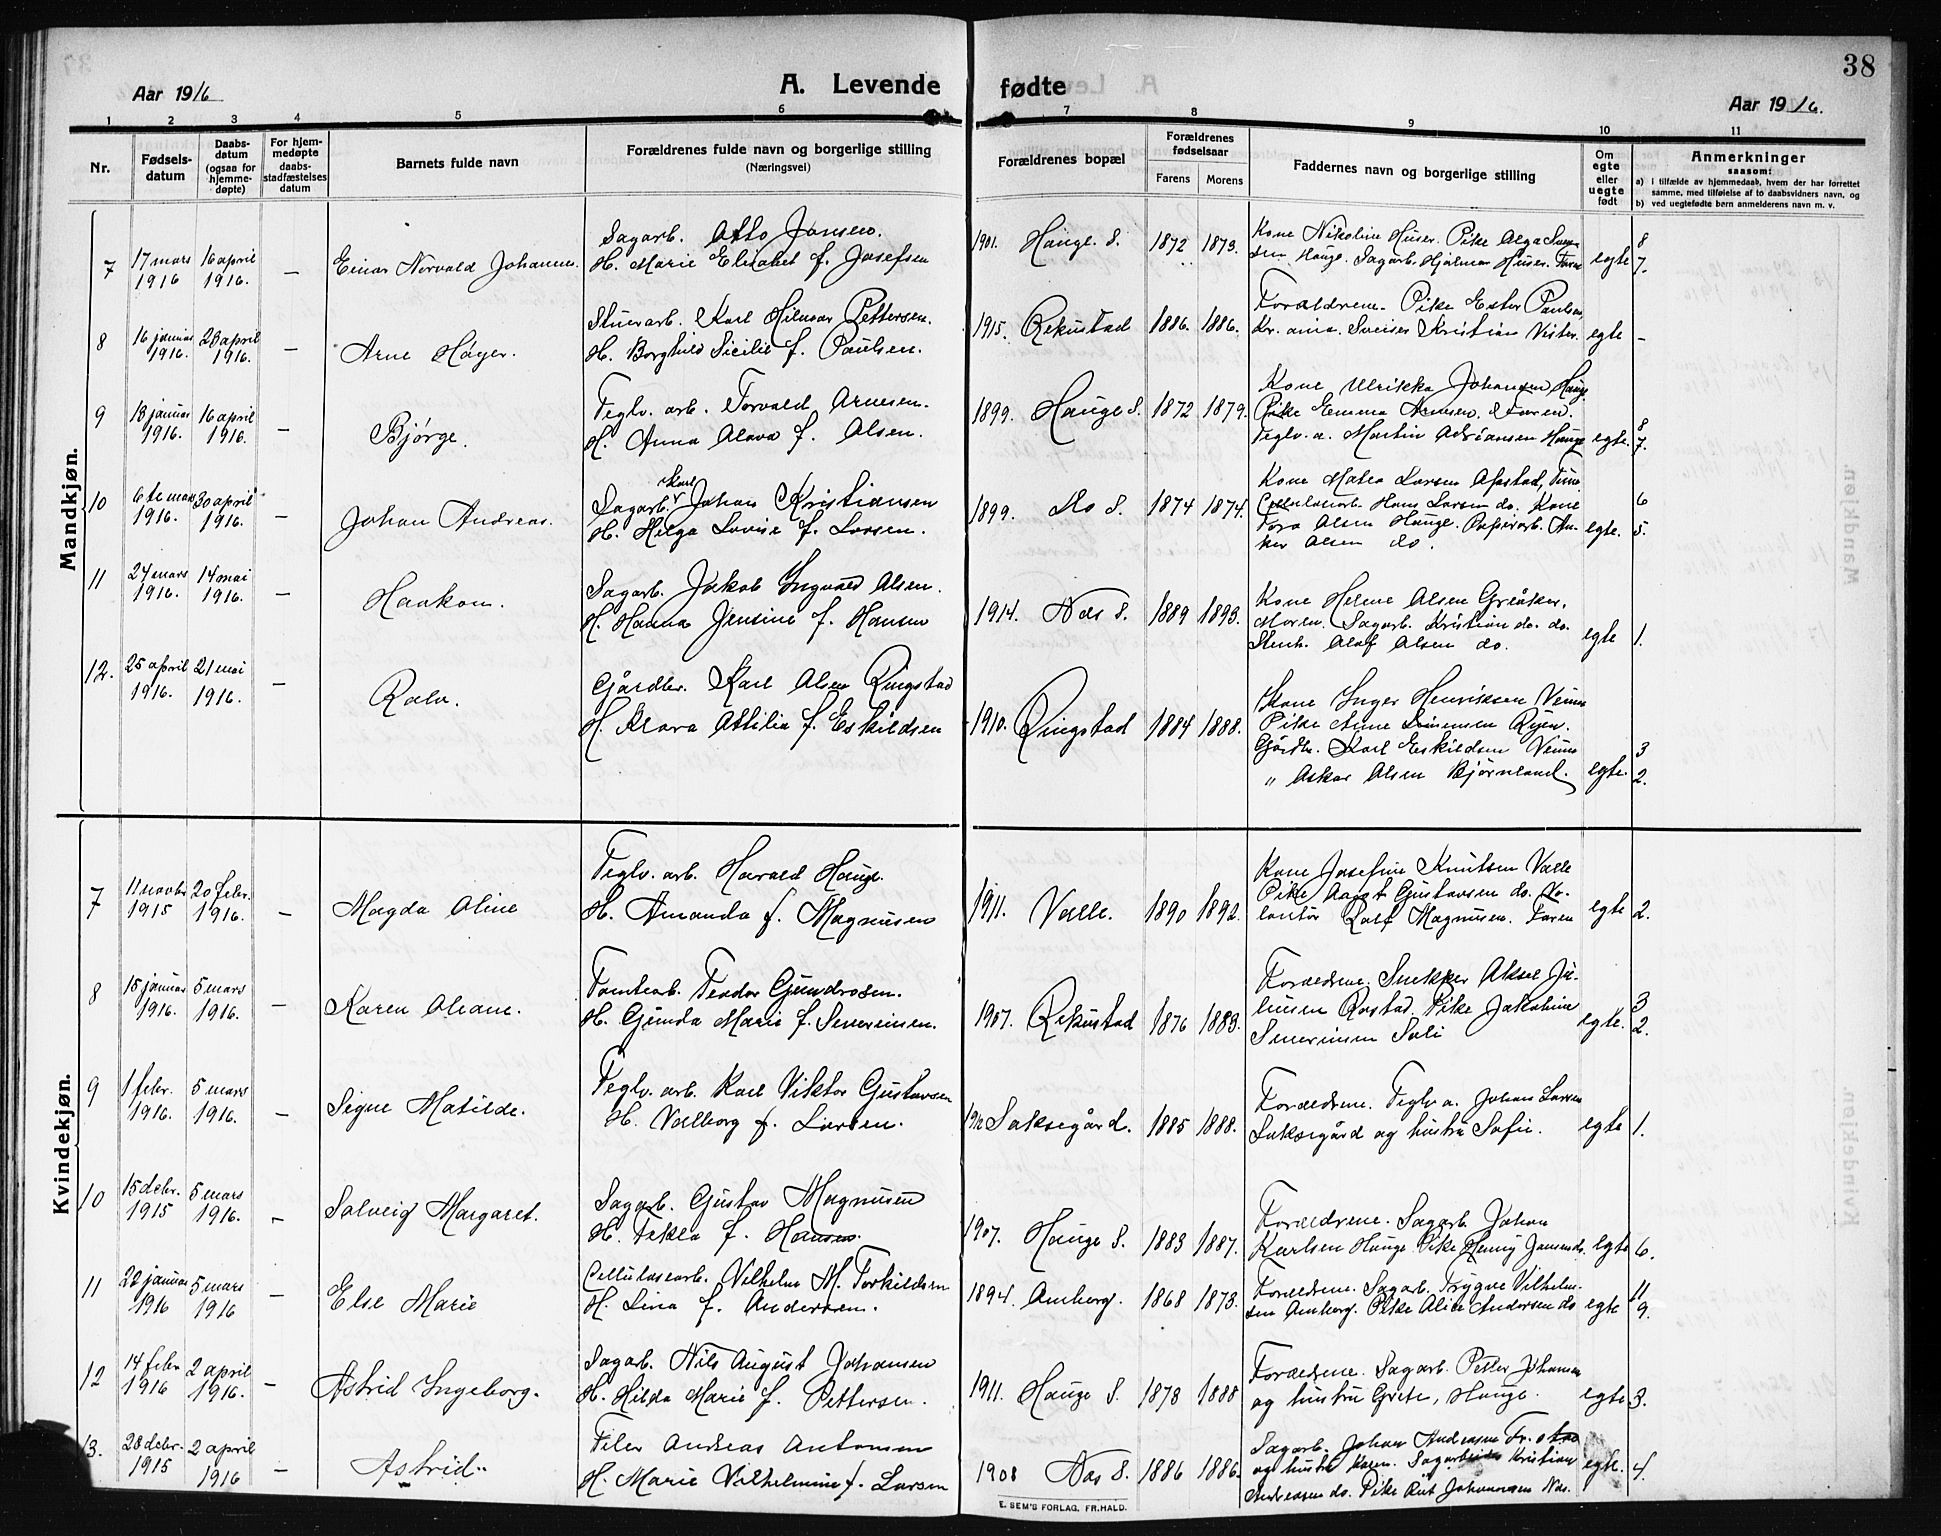 38
Aar 1916
A. Levende fødte
Aar 1916.
1 2 3 4 5 6 7 8 9 10 11
Nr.
Fødsels-
datum
Daabs-
datum
(ogsaa for
hjemme-
døpte)
For hjem-
medøpte
daabs-
stadfæstelses
datum
Barnets fulde navn
Forældrenes fulde navn og borgerlige stilling
(Næringsvei)
Forældrenes bopæl
Forældrenes
fødselsaar
Farens Morens
Faddernes navn og borgerlige stilling
Om
egte
eller
uegte
født
Anmerkninger
saasom:
a) I tilfælde av hjemmedaab, hvem der har forrettet
samme, med tilføielse af to daabsvidners navn, og
b) ved uegtefødte børn anmelderens navn m. v.
Mandkjøn.
7 17 mars 1916 16 april 1916. — Einar Norvald Johannes.
Sagarb. Otto Jansen.
H. Marie Elisabet f. Josefsen
1901. Hauge S. 1872 1873.
Kone Nikoline Huser. Pike Olga
Hauge. Sagarb. Hjalmar Huser. Faren
egte 8 7.
8 16 januar 1916. 23 april 1916. — Arne Høyer.
Stuerarb. Karl Hilmar Pettersen.
H. Borghild Sicilie f. Paulsen.
1915. Rekustad 1886. 1886.
Forældrene. Pike Ester Paulsen
Kr. ania. Sveiser Kristian Vister.
egte -
9 18 januar 1916. 16 april 1916. — Bjørge.
Teglv. arb. Torvald Arnesen.
H. Anna Olava f. Olsen.
1899. Hauge S. 1872 1879.
Kone Ulrikka Johansen Hauge
Pike Emma Arnesen. Faren.
Teglv. a. Martin Adriansen Hauge
egte. 8 7.
10 6te mars 1916. 30 april 1916. — Johan Andreas.
Karl
Sagarb. Johan Kristiansen
H. Helga Lovise f. Larsen.
1899. Do S. 1874 1874.
Kone Matea Larsen Opstad, Tune
Cellulosearb. Hans Larsen do. Kone
Tora Olsen Hauge. Papirarb. An-
ker Olsen do.
egte. 6 5.
11 24 mars 1916. 14 mai 1916. — Haakon.
Sagarb. Jakob Ingvald Olsen.
H. Hanna Jensine f. Hansen
1914. Nes S. 1889 1893.
Kone Helene Olsen Greåker.
Moren. Sagarb. Kristian do. do.
Olaf Olsen do.
egte 1.
12. 25 april 1916. 21 mai 1916. — Rolv.
Gårdbr. Karl Olsen Ringstad
H. Klara Attilia f. Eskildsen
1910. Ringstad 1884 1888.
Kone Inger Henriksen
Pike Anne Ryen.
Gårdbr. Karl Eskildsen
" Oskar Olsen Bjørnland.
egte. 3 2.
Kvindekjøn.
7 11 novbr 1915 20 febr. 1916. — Magda Oline
Teglv. arb. Harald Hauge.
H. Amanda f. Magnusen
1911. Valle. 1890 1892.
Kone Josefine Knutsen Valle
Pike Aagot Gustavsen do. Vo-
lontør Rolf Magnusen. Faren
egte 2.
8 15 januar 1916. 5 mars 1916. — Karen Oleane.
Tomtearb. Teodor Gundrosen.
H. Gunda Marie f. Severinsen.
1907. Rekustad 1876 1883.
Forældrene. Snekker Aksel Ju-
liusen Rostad. Pike Jakobine
Severinsen Soli
egte. 3 2.
9 1 febr. 1916. 5 mars 1916. — Signe Matilde.
Teglv. arb. Karl Viktor Gustavsen
H. Valborg f. Larsen.
1912 Saksegård. 1885 1888.
Forældrene. Teglv a. Johan Larsen
Saksegård og hustru Sofie.
egte 1.
10 15 decbr. 1915 5 mars 1916. — Solveig Margaret.
Sagarb. Gustav Magnusen
H. Tekla f. Hansen.
1907. Hauge S. 1883 1887.
Forældrene. Sagarb. Johan
Karlsen Hauge. Pike Henny Jansen do.
egte 6.
11 22 januar 1916 5 mars 1916 — Else Marie
Cellulosearb. Vilhelm M. Torkildsen
H. Lina f. Andersen.
1894. Amborg. 1868 1873.
Forældrene. Sagarb. Trygve Vilhelm-
sen Amborg. Pike Alise Andersen do
egte 11 9.
12 14 febr 1916 2 april 1916. — Astrid Ingeborg.
Sagarb. Nils August Johansen
H. Hilda Marie f. Pettersen.
1911. Hauge S. 1878 1888
Forældrene. Sagarb. Petter Johansen
og hustru Grete, Hauge.
egte 3.
13. 28 decbr. 1915 2 april 1916 — Astrid.
Filer Andreas Antonsen
H. Marie Vilhelmine f. Larsen
1908 Nes S. 1886 1886.
Sagarb. Johan Andersen Fr. stad
og hustru Karen. Sagarbeider Kristian
Andreasen do. Pike Rut Johannesen Nes.
egte. 4.
E. SEM'S FORLAG, FR.HALD.